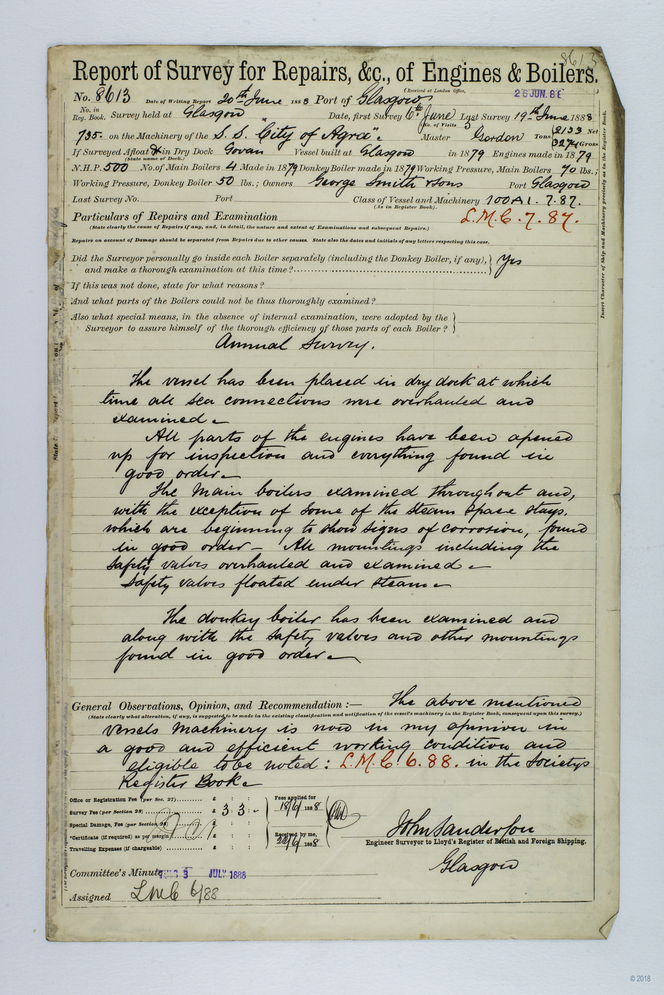 8613
Report of Survey for Repairs, &c., of Engines & Boilers.
(Received at London Office,
26 JUN. 88
No. 8613 Date of Writing Report 20th June 1888 Port of Glasgow
No. in Reg. Book. Survey held at Glasgow Date, first Survey 6th June Last Survey 19th June 1888
No. of Visits 5
735. on the Machinery of the S. S. "City of Agra". Master Gordon Tons 2133 Net 3274 Gross
If Surveyed Afloat or in Dry Dock Govan Vessel built at Glasgow in 1879 Engines made in 1879
(State name of Dock.)
N.H.P. 500 No. of Main Boilers 4 Made in 1879 Donkey Boiler made in 1879 Working Pressure, Main Boilers 70 lbs.;
Working Pressure, Donkey Boiler 50 lbs.; Owners George Smith & Sons Port Glasgow
Last Survey No. Port Class of Vessel and Machinery 100A1. 7. 87.
(As in Register Book).
Particulars of Repairs and Examination L.M.C. 7. 87.
(State clearly the cause of Repairs if any, and, in detail, the nature and extent of Examinations and subsequent Repairs.)
Repairs on account of Damage should be separated from Repairs due to other causes. State also the dates and initials of any letters respecting this case.
Did the Surveyor personally go inside each Boiler separately (including the Donkey Boiler, if any), Yes
and make a thorough examination at this time?
If this was not done, state for what reasons?
And what parts of the Boilers could not be thus thoroughly examined?
Also what special means, in the absence of internal examination, were adopted by the
Surveyor to assure himself of the thorough efficiency of those parts of each Boiler?
Annual Survey.
The vessel has been placed in dry dock at which
time all sea connections were overhauled and
examined -
All parts of the engines have been opened
up for inspection and everything found in
good order -
The Main boilers examined throughout and,
with the exception of some of the steam space stays.
which are beginning to show signs of corrosion, found
in good order - All mountings including the
safety valves overhauled and examined -
Safety valves floated under steam -
The donkey boiler has been examined and
along with the safety valves and other mountings
found in good order -
General Observations, Opinion, and Recommendation :— The above mentioned
(State clearly what alteration, if any, is suggested to be made in the existing classification and notification of the vessel's machinery in the Register Book, consequent upon this survey.)
vessels machinery is now in my opinion in
a good and efficient working condition and
eligible to be noted: L.M.C. 6. 88. in the Society's
Register Book -
Office or Registration Fee (per Sec. 27) £ : : Fees applied for
Survey Fee (per Section 28) £ 3 : 3 : - 18/6/1888
Special Damage, Fee (per Section 28) £ : :
*Certificate (if required) as per margin £ : : Received by me,
Travelling Expenses (if chargeable) £ : : 1888
John Sanderson
Engineer Surveyor to Lloyd's Register of British and Foreign Shipping.
Glasgow
Committee's Minute TUES 3 JULY 1888
Assigned LMC 6/88
Insert Character of Ship and Machinery precisely as in the Register Book.
© 2018